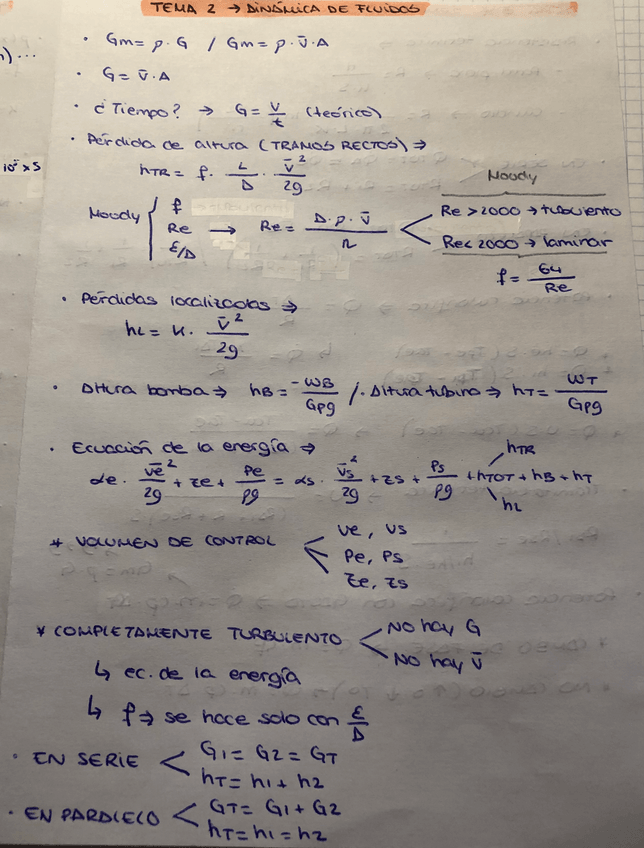 TEMA 2 → DINÁMICA DE FLUIDOS
· Gm = ρ · G / Gm = ρ · v̄ · A
· G = v̄ · A
· ¿Tiempo? → G = V/t (teórico)
· Pérdida de altura (TRAMOS RECTOS) ⇒
hTR = f · L/D · v̄²/2g
Moody
Moody { f Re ε/D → Re = D · ρ · v̄ / η
Re > 2000 → turbulento
Re < 2000 → laminar
f = 64/Re
· Pérdidas localizadas ⇒
hL = K · v̄²/2g
· Altura bomba ⇒ hB = -WB/Gρg / · Altura turbina ⇒ hT = WT/Gρg
· Ecuación de la energía ⇒
αe · v̄e²/2g + ze + Pe/ρg = αs · v̄s²/2g + zs + Ps/ρg + hTOT + hB + hT
hTR
hL
* VOLUMEN DE CONTROL
ve, vs
Pe, Ps
ze, zs
* COMPLETAMENTE TURBULENTO
NO hay G
NO hay v̄
↳ ec. de la energía
↳ f ⇒ se hace solo con ε/D
· EN SERIE
G1 = G2 = GT
hT = h1 + h2
· EN PARALELO
GT = G1 + G2
hT = h1 = h2
10⁻⁵ x S